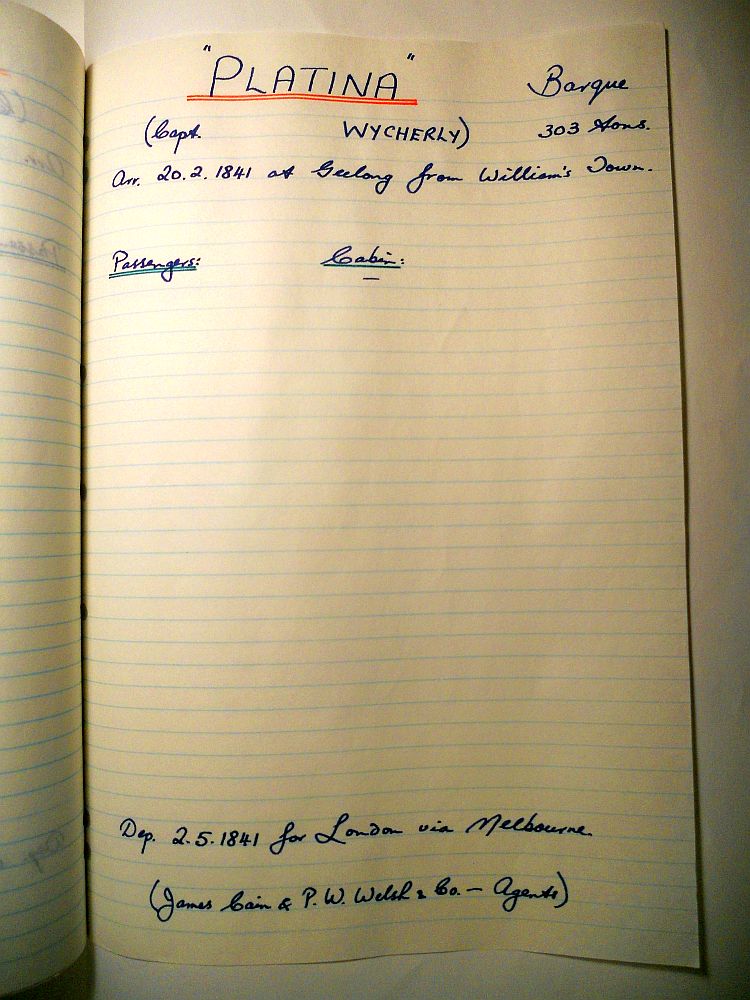 "PLATINA" Barque
(Capt. WYCHERLY) 303 tons.
Arr. 20.2.1841 at Geelong from William's Town.
Passengers: Cabin:
—
Dep. 2.5.1841 for London via Melbourne.
(James Cain & P.W. Welsh & Co. — Agents)